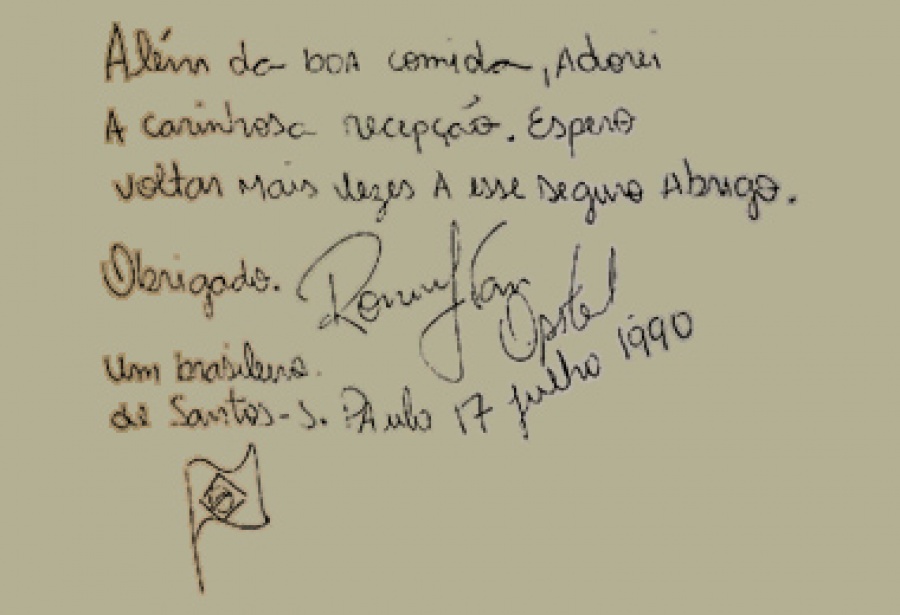 Além da boa comida, Adorei
A carinhosa recepção. Espero
voltar mais vezes A esse seguro Abrigo.
Obrigado.
um brasileiro.
de Santos-S. PAulo 17 julho 1990